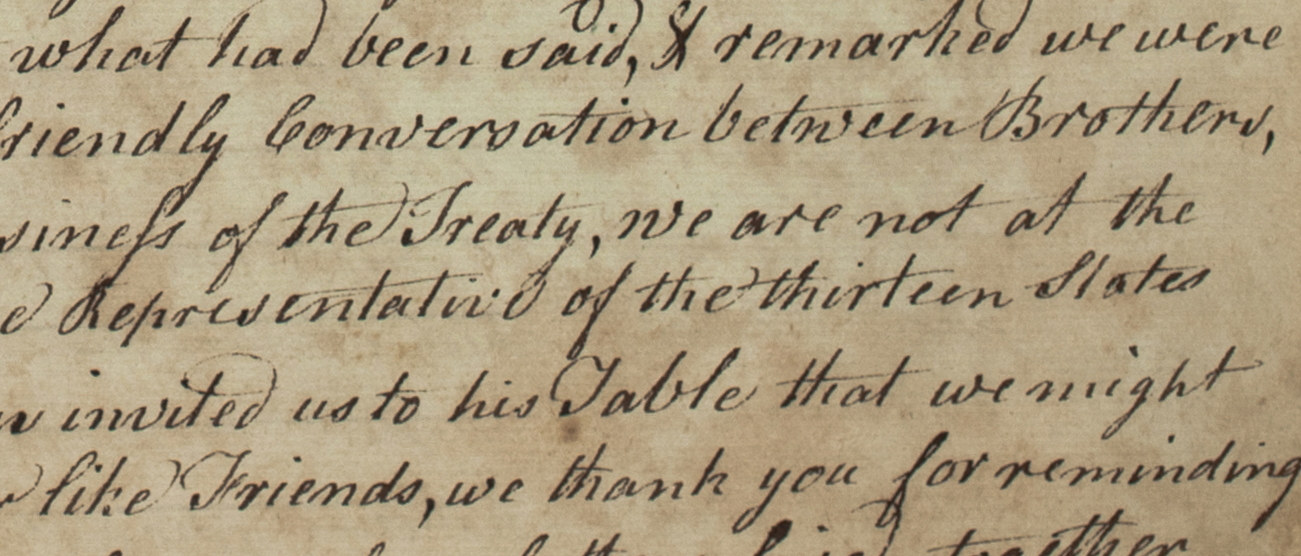 what had been said, & remarked we were
friendly Conversation between Brothers,
siness of the Treaty, we are not at the
Representative of the thirteen States
invited us to his Table that we might
like Friends, we thank you for reminding
together